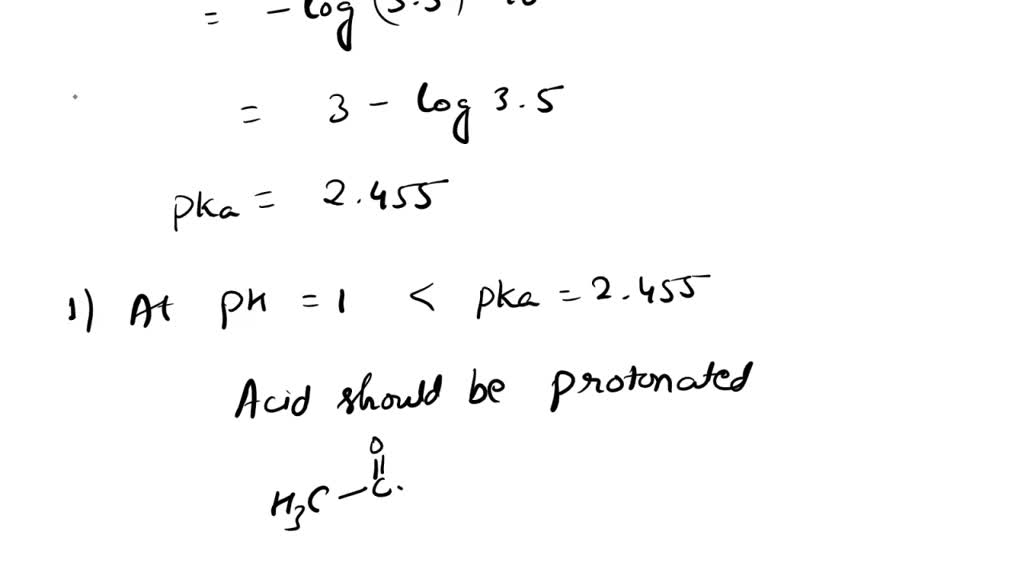 = - log (3.5) 10
= 3 - log 3.5
pka = 2.455
1) At pH = 1 < pka = 2.455
Acid should be protonated
O
H3C - C.